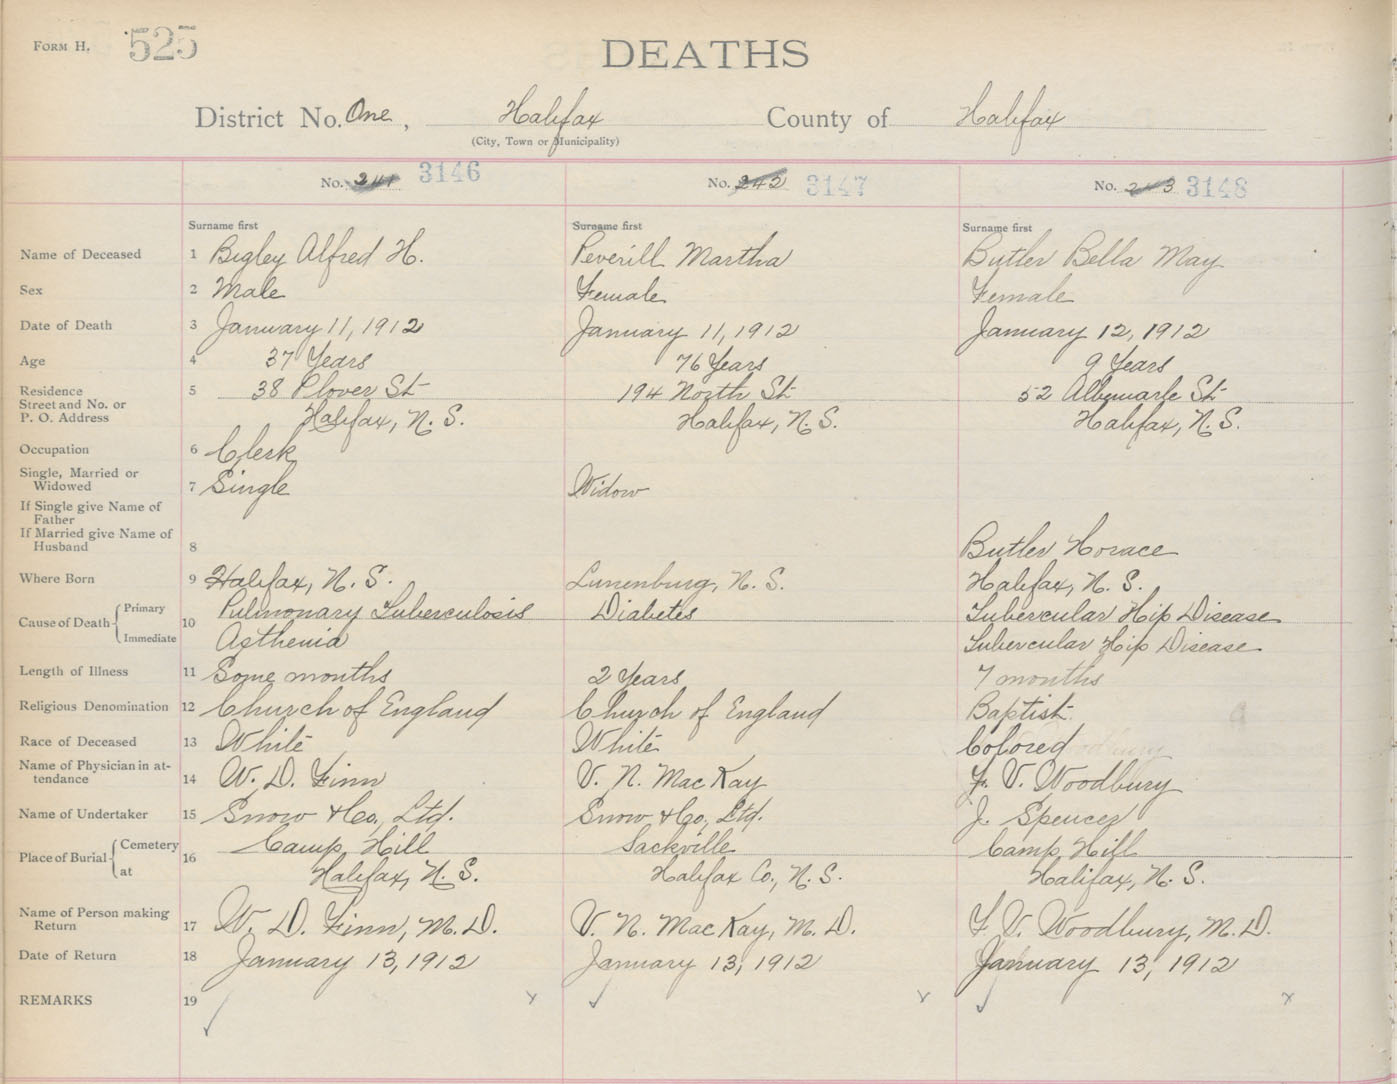 FORM H. 525
DEATHS
District No. One, Halifax County of Halifax
(City, Town or Municipality)
No. 241 3146 No. 242 3147 No. 243 3148
Surname first Surname first Surname first
Name of Deceased 1 Bigley Alfred H. Peverill Martha Butler Bella May
Sex 2 Male Female Female
Date of Death 3 January 11, 1912 January 11, 1912 January 12, 1912
Age 4 37 Years 76 Years 9 Years
Residence 5 38 Plover St 194 North St 52 Albemarle St
Street and No. or
P. O. Address Halifax, N. S. Halifax, N. S. Halifax, N. S.
Occupation 6 Clerk
Single, Married or
Widowed 7 Single Widow
If Single give Name of
Father
If Married give Name of
Husband 8 Butler Horace
Where Born 9 Halifax, N. S. Lunenburg, N. S. Halifax, N. S.
Cause of Death Primary 10 Pulmonary Tuberculosis Diabetes Tubercular Hip Disease
Immediate Asthenia Tubercular Hip Disease
Length of Illness 11 Some months 2 Years 7 months
Religious Denomination 12 Church of England Church of England Baptist
Race of Deceased 13 White White Colored
Name of Physician in at-
tendance 14 W. D. Finn V. N. MacKay F. V. Woodbury
Name of Undertaker 15 Snow & Co., Ltd. Snow & Co., Ltd. J. Spencer
Place of Burial Cemetery 16 Camp Hill Sackville Camp Hill
at Halifax, N. S. Halifax Co., N. S. Halifax, N. S.
Name of Person making
Return 17 W. D. Finn, M. D. V. N. MacKay, M. D. F. V. Woodbury, M. D.
Date of Return 18 January 13, 1912 January 13, 1912 January 13, 1912
REMARKS 19